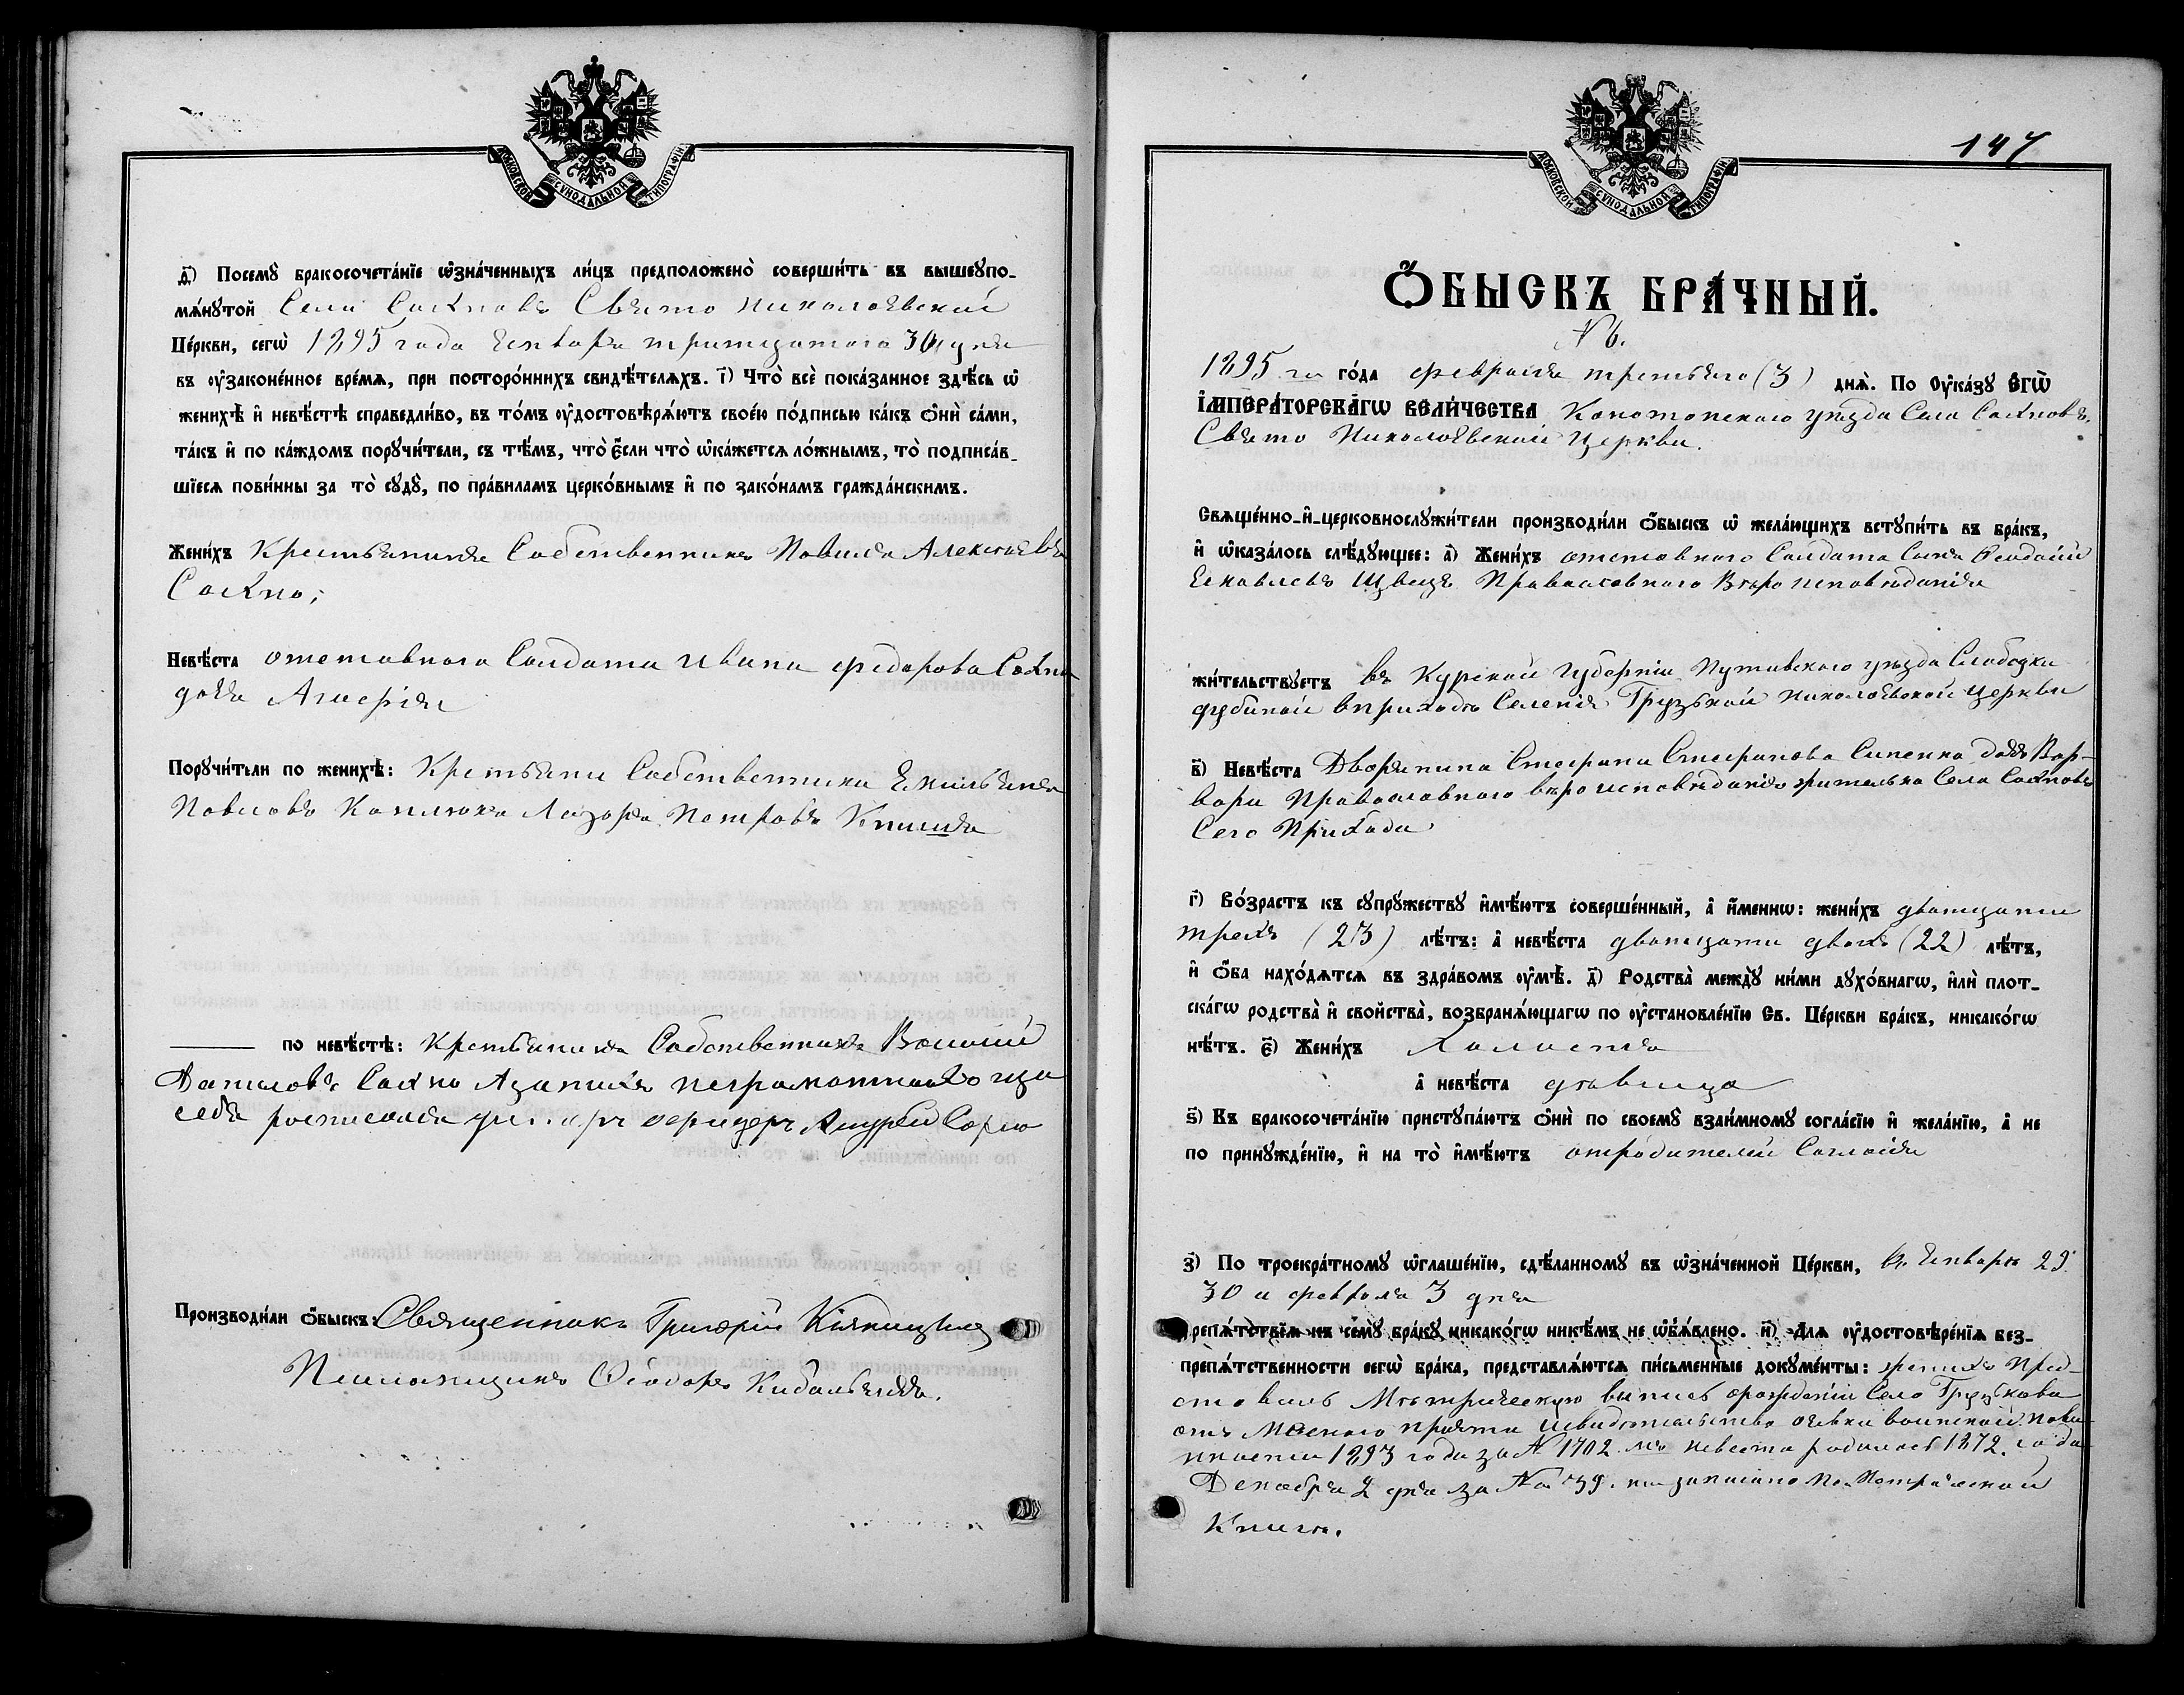 МОСКОВСКОЙ СѴНОДАЛЬНОЙ ТИПОГРАФІИ
Посемꙋ̀ бракосочета́нїе ѡ҆зна́ченныхъ ли́цъ предположено̀ соверши́ть въ вышеꙋпо-
мѧ́нꙋтой Села Сахновъ Свято Николаевской
Це́ркви, сегѡ̀ 1895 года Января тритцатого 30 дня
въ ᲂу҆законе́нное вре́мѧ, при посторо́ннихъ свидѣ́телѧхъ. і҃) Что̀ всѐ пока́занное здѣ́сь ѡ҆
женихѣ̀ и҆ невѣ́стѣ справедли́во, въ то́мъ ᲂу҆достовѣрѧ́ютъ свое́ю по́дписью ка́къ ѻ҆нѝ са́ми,
та́къ и҆ по ка́ждомъ порꙋчи́тели, съ тѣ́мъ, что̀ є҆́сли что̀ ѡ҆ка́жетсѧ ло́жнымъ, то̀ подписа́в-
шїесѧ пови́нны за то̀ сꙋдꙋ̀, по пра́виламъ церко́внымъ и҆ по зако́намъ гражда́нскимъ.
Жени́хъ Крестьянинъ Собственникъ Павилъ Алексѣевъ
Сахно;
Невѣ́ста отставного Солдата Ивана Федорова Сахна
дочь
Порꙋчи́тели по женихѣ̀: Крестьяни Собственники Емильянъ
Павловъ Лазаръ Петровъ
по невѣ́стѣ: Крестьянинъ Собственникъ Василий
Даниловъ Сахно неграмотных за
себя росписался Андрей
Производи́ли ѻ҆́быскъ: Священникъ Григорій
Псаломщикъ Ѳеодоръ
147
МОСКОВСКОЙ СѴНОДАЛЬНОЙ ТИПОГРАФІИ
Ѻ҆́БЫСКЪ БРА́ЧНЫЙ.
N 6.
1895 го го́да февраля третьяго (3) днѧ̀. По Оу҆ка́зꙋ Є҆ГѠ̀
І҆МПЕРА́ТОРСКАГѠ ВЕЛИ́ЧЕСТВА Конотопского уезда Села Сахновъ
Свято Николаевской Церкви.
Свѧще́нно-и҆-церковнослꙋжи́тели производи́ли ѻ҆́быскъ ѡ҆ жела́ющихъ встꙋпи́ть въ бра́къ,
и҆ ѡ҆каза́лось слѣ́дꙋющее: а҃) Жени́хъ отставного Солдата Сынъ Феодосій
Яковлевъ Швецъ Православного Вѣро исповѣданія
жи́тельствꙋетъ въ Курской Губерніи Путивского уезда Слободки
в приходѣ Селенія Грузской Николаевской церкви
в҃) Невѣ́ста Дворянина Стефана Стефанова Сипенка дочь Вар-
вара Православного вѣро исповѣданія жителька Села Сахновъ
Сего Прихода
г҃) Во́зрастъ къ сꙋпрꙋ́жествꙋ и҆мѣ́ютъ соверше́нный, а҆ и҆́менно: жени́хъ дватцати
трехъ (23) лѣ́тъ: а҆ невѣ́ста дватцати двохъ (22) лѣ́тъ,
и҆ ѻ҆́ба нахо́дѧтсѧ въ здра́вомъ ᲂу҆мѣ̀. д҃) Родства̀ междꙋ̀ ни́ми дꙋхо́внагѡ, и҆лѝ плот-
ска́гѡ родства̀ и҆ свойства̀, возбранѧ́ющагѡ по ᲂу҆становле́нїю Св. Це́ркви бра́къ, никако́гѡ
нѣ́тъ. є҃) Жени́хъ Холостъ
а҆ невѣ́ста дѣвица
ѕ҃) Къ бракосочета́нїю пристꙋпа́ютъ ѻ҆нѝ по своемꙋ̀ взаи́мномꙋ согла́сїю и҆ жела́нїю, а҆ не
по принꙋжде́нїю, и҆ на то̀ и҆мѣ́ютъ отродителей Согласія
з҃) По троекра́тномꙋ ѡ҆глаше́нїю, сдѣ́ланномꙋ въ ѡ҆зна́ченной Це́ркви, въ Январѣ 29
30 и февраля 3 дня
препѧ́тствїѧ къ семꙋ̀ бра́кꙋ никако́гѡ никѣ́мъ не ѡ҆б̾ѧ́влено. и҃) Длѧ ᲂу҆достовѣре́нїѧ без-
препѧ́тственности сегѡ̀ бра́ка, представлѧ́ютсѧ пи́сьменные докꙋме́нты: женихъ Пред-
ставилъ Метрическую випись орождении Село Грузкова
отъ Месного прычта исвидетельство оявки воинской пови-
нности 1893 года за N 1702 невеста родилась 1872 года
Декабря 2 дня за No записано по Метрической
Книге.